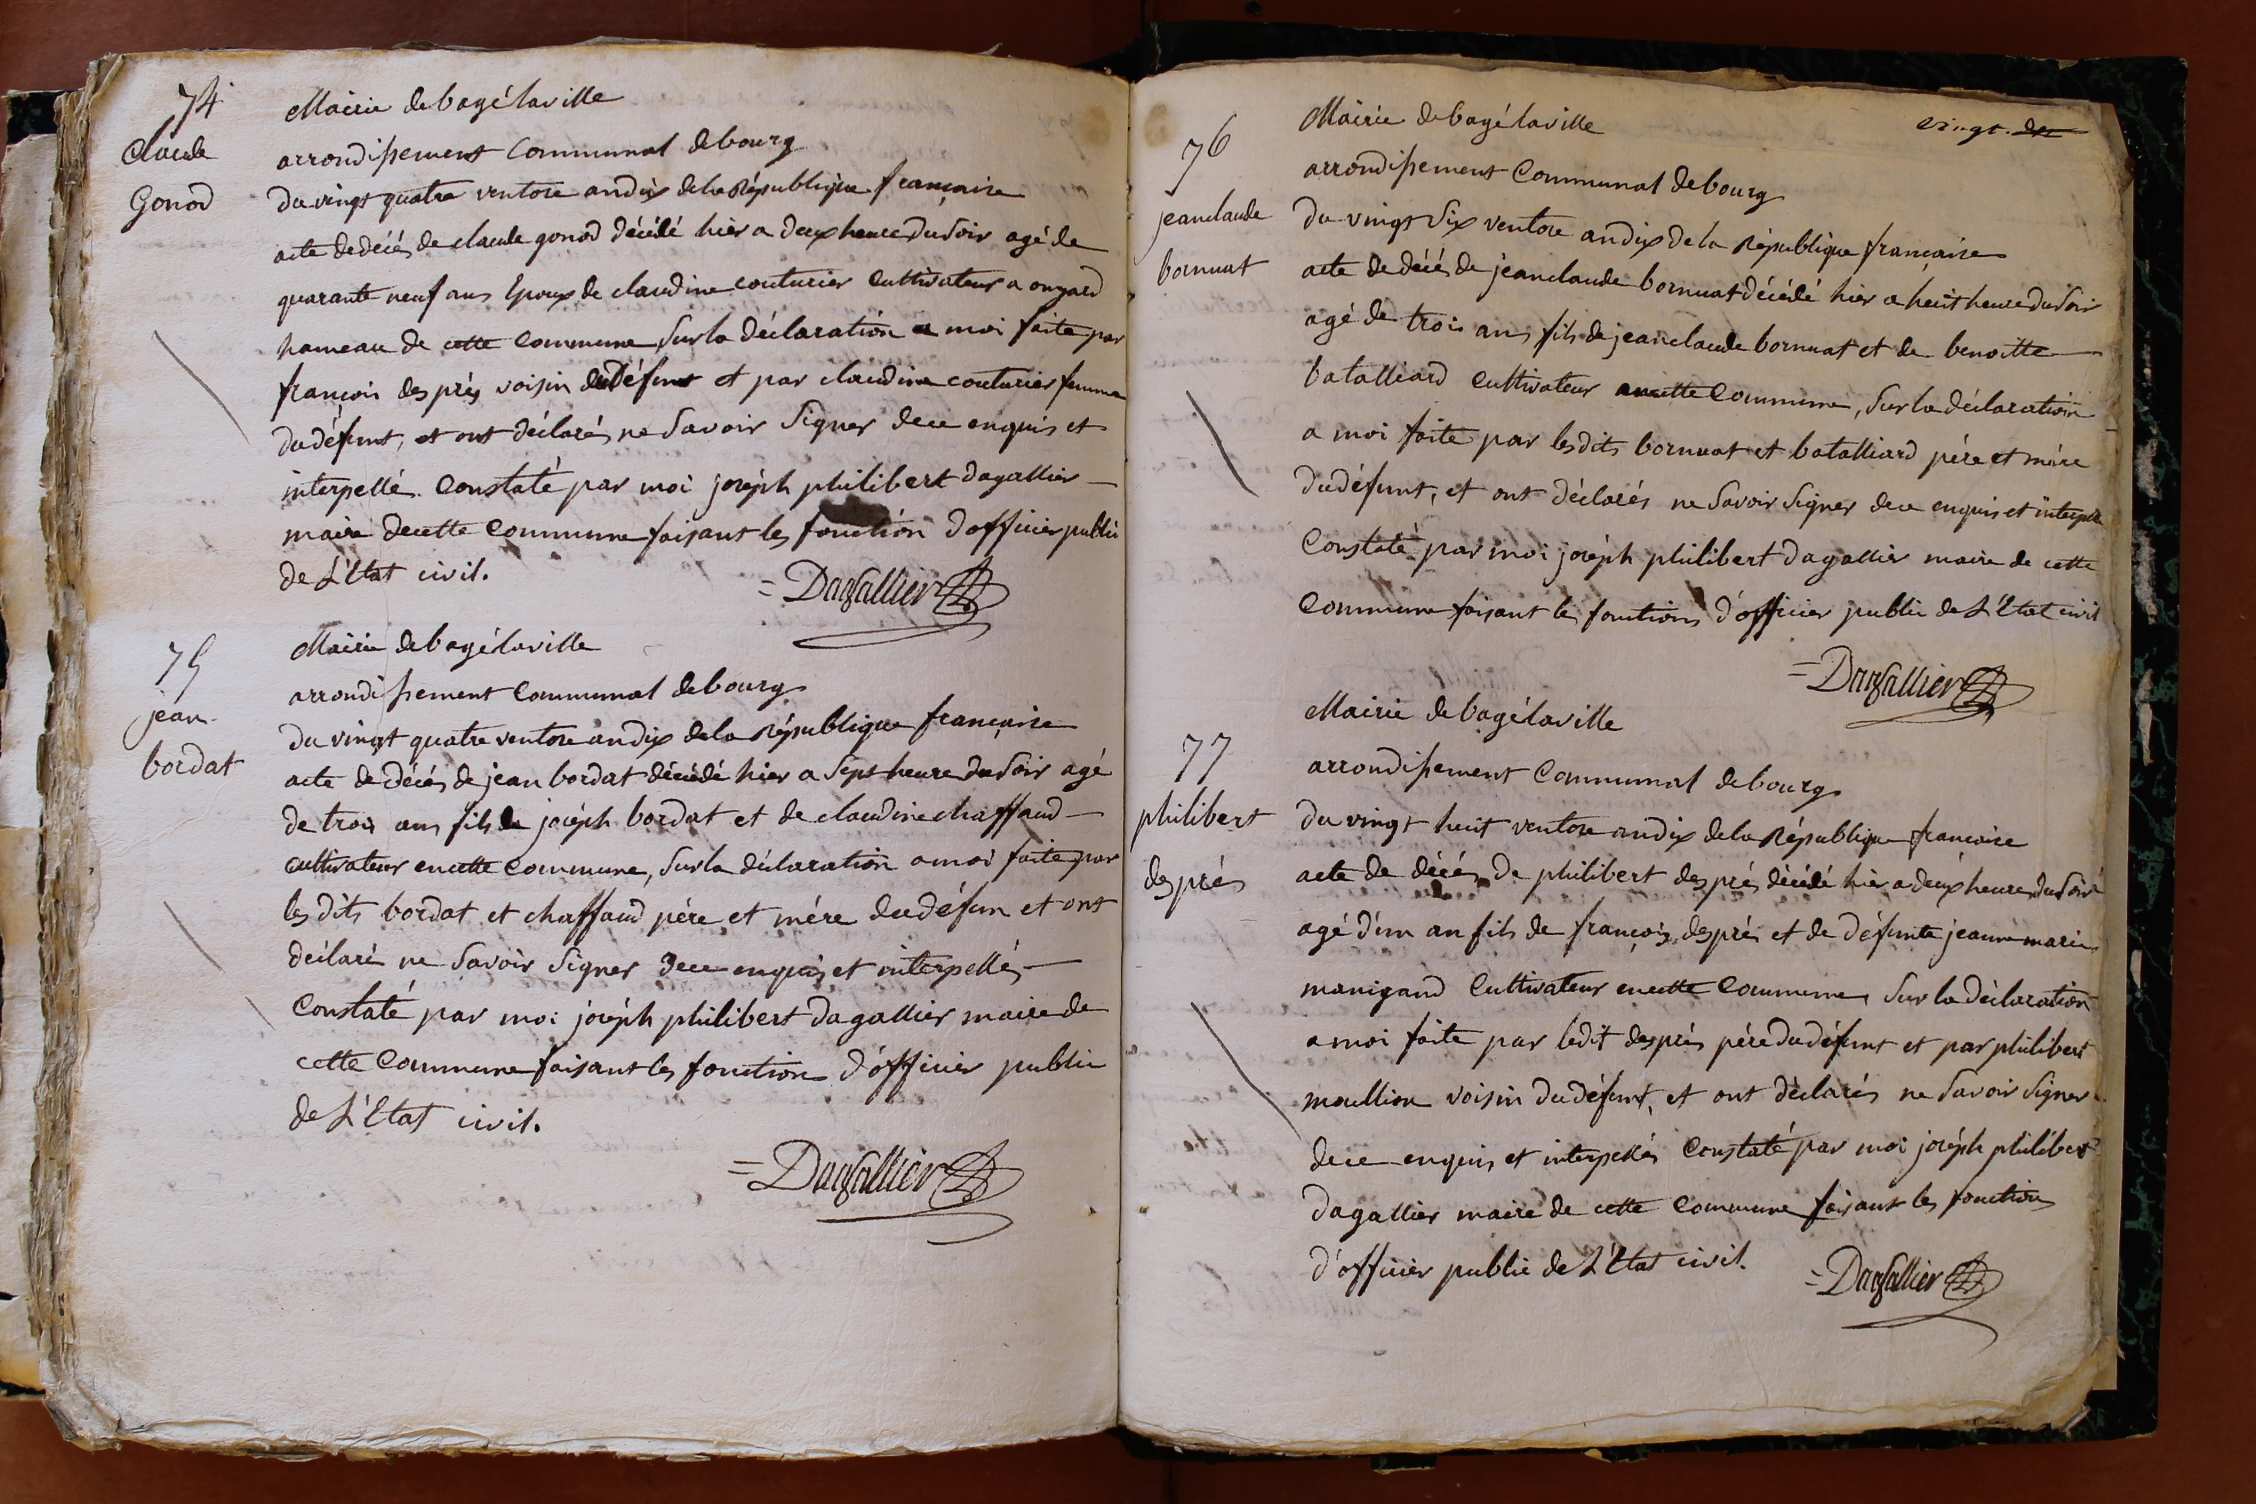 74
Claude
Gonod
Mairie de bagé laville
arrondissement Communal de bourg
du vingt quatre ventose an dix de la République francaise
acte de décés de claude gonod décédé hier a deux heure du soir agé de
quarante neuf ans Epoux de claudine couturier Cultivateur a
hameau de cette Commune, Sur la déclaration a moi faite par
françois després voisin du Défunt et par claudine couturier femme
du défunt, et ont déclarés ne Savoir Signer de ce enquis et
interpellé. Constaté par moi joséph philibert dagallier
maire de cette Commune faisant les fonction d'officier public
de L'Etat civil.
= Dagallier
75
jean
bordat
Mairie de bagé laville
arrondissement Communal de bourg
du vingt quatre ventose an dix de la République francaise
acte de décés de jean bordat décédé hier a Sept heure du Soir agé
de trois ans fils de joséph bordat et de claudine chaffaud
cultivateur en cette Commune, Sur la déclaration a moi faite par
les dits bordat et chaffaud pére et mére du défun et ont
déclaré ne Savoir Signer de ce enquis et interpellés
Constaté par moi joséph philibert dagallier maire de
cette Commune faisant les fonction d'officier public
de L'Etat civil.
= Dagallier
vingt
76
jean claude
bornuat
Mairie de bagé laville
arrondissement Communal de bourg
du vingt Six ventose an dix de la République française
acte de décés de jean claude bornuat décédé hier a heuit heure du Soir
agé de trois ans fils de jean claude bornuat et de benoitte
batalliard Cultivateur en cette Commune, Sur la déclaration
a moi faite par les dits bornuat et batalliard pére et mére
du défunt, et ont déclarés ne Savoir Signer de ce enquis et interpelé
Constaté par moi joséph philibert dagallier maire de cette
Commune faisant les fonctions d'officier public de L'Etat civil
= Dagallier
77
philibert
després
Mairie de bagé laville
arrondissement Communal de bourg
du vingt heuit ventose an dix de la République francaise
acte de décés de philibert després décédé hier a deux heure du Soir
agé d'un an fils de françois després et de défunte jeanne marie
manigand Cultivateur en cette Commune, Sur la déclaration
a moi faite par ledit després pére du défunt et par philibert
moullion voisin du défunt, et ont déclarés ne Savoir Signer
de ce enquis et interpellés Constaté par moi joséph philibert
dagallier maire de cette Commune faisant les fonction
d'officier public de L'Etat civil.
= Dagallier